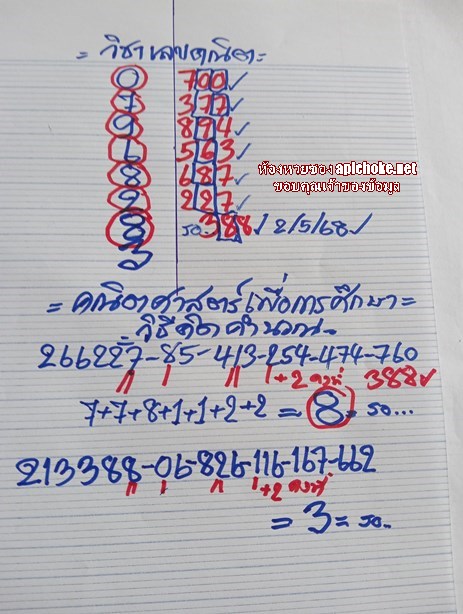 = วิชาเลขคณิต =
0 700 ✓
7 377 ✓
9 894 ✓
6 563 ✓
8 687 ✓
2 227 ✓
8 รอ.. 388 ✓ 2/5/68 ✓
3
ห้องหวยซอง apichoke.net
ขอบคุณเจ้าของข้อมูล
= คณิตศาสตร์เพื่อการศึกษา =
วิธีคิดคำนวณ
266227-85-413-254-474-760
+2 คงที่ 388 ✓
7+7+8+1+1+2+2 = 8 = รอ...
213388-06-826-116-167-662
+2 คงที่
= 3 = รอ..